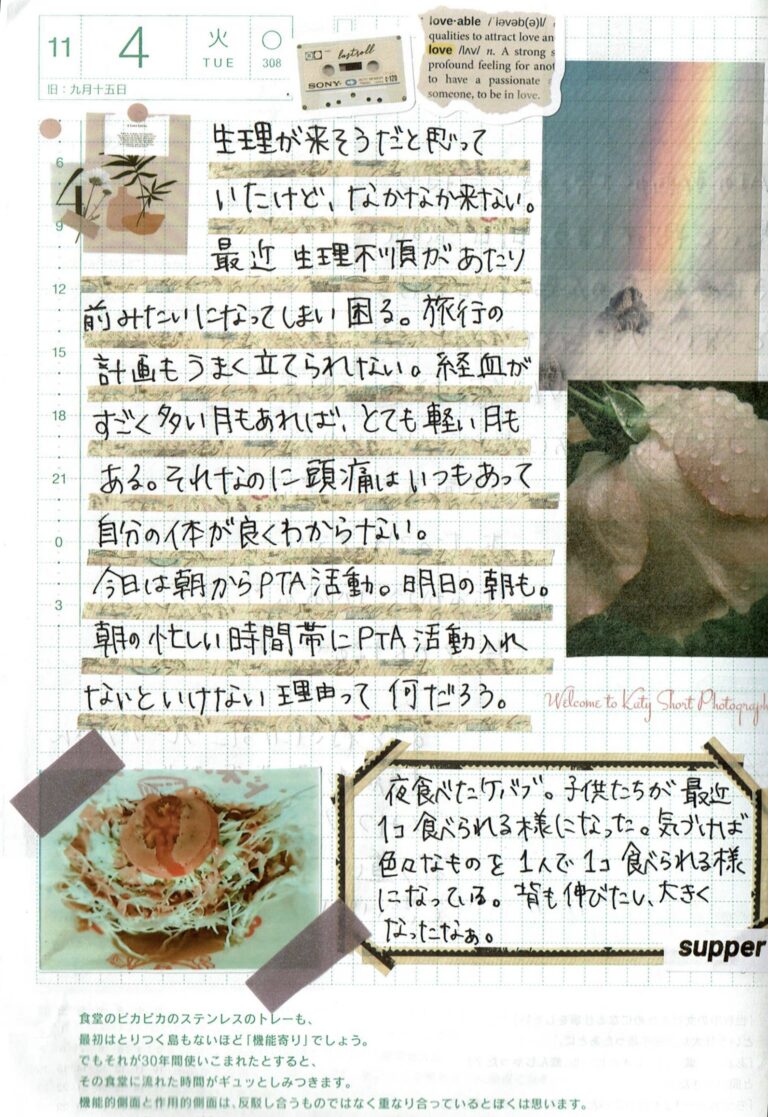 11
4
火
TUE
308
旧：九月十五日
lostroll
SONY
C-120
love·able / ˈləvəb(ə)l/
qualities to attract love an
love /lʌv/ n. A strong
profound feeling for anot
to have a passionate
someone, to be in love.
生理が来そうだと思って
いたけど、なかなか来ない。
最近 生理不順があたり
前みたいになってしまい困る。旅行の
計画もうまく立てられない。経血が
すごく多い月もあれば、とても軽い月も
ある。それなのに頭痛はいつもあって
自分の体が良くわからない。
今日は朝からPTA活動。明日の朝も。
朝の忙しい時間帯にPTA活動入れ
ないといけない理由って何だろう。
6
9
12
15
18
21
0
3
4
Welcome to Katy Short Photograph
夜食べたケバブ。子供たちが最近
1コ食べられる様になった。気づけば
色々なものを1人で1コ食べられる様
になっている。背も伸びたし、大きく
なったなぁ。
supper
食堂のピカピカのステンレスのトレーも、
最初はとりつく島もないほど「機能寄り」でしょう。
でもそれが30年間使いこまれたとすると、
その食堂に流れた時間がギュッとしみつきます。
機能的側面と作用的側面は、反駁し合うものではなく重なり合っているとぼくは思います。